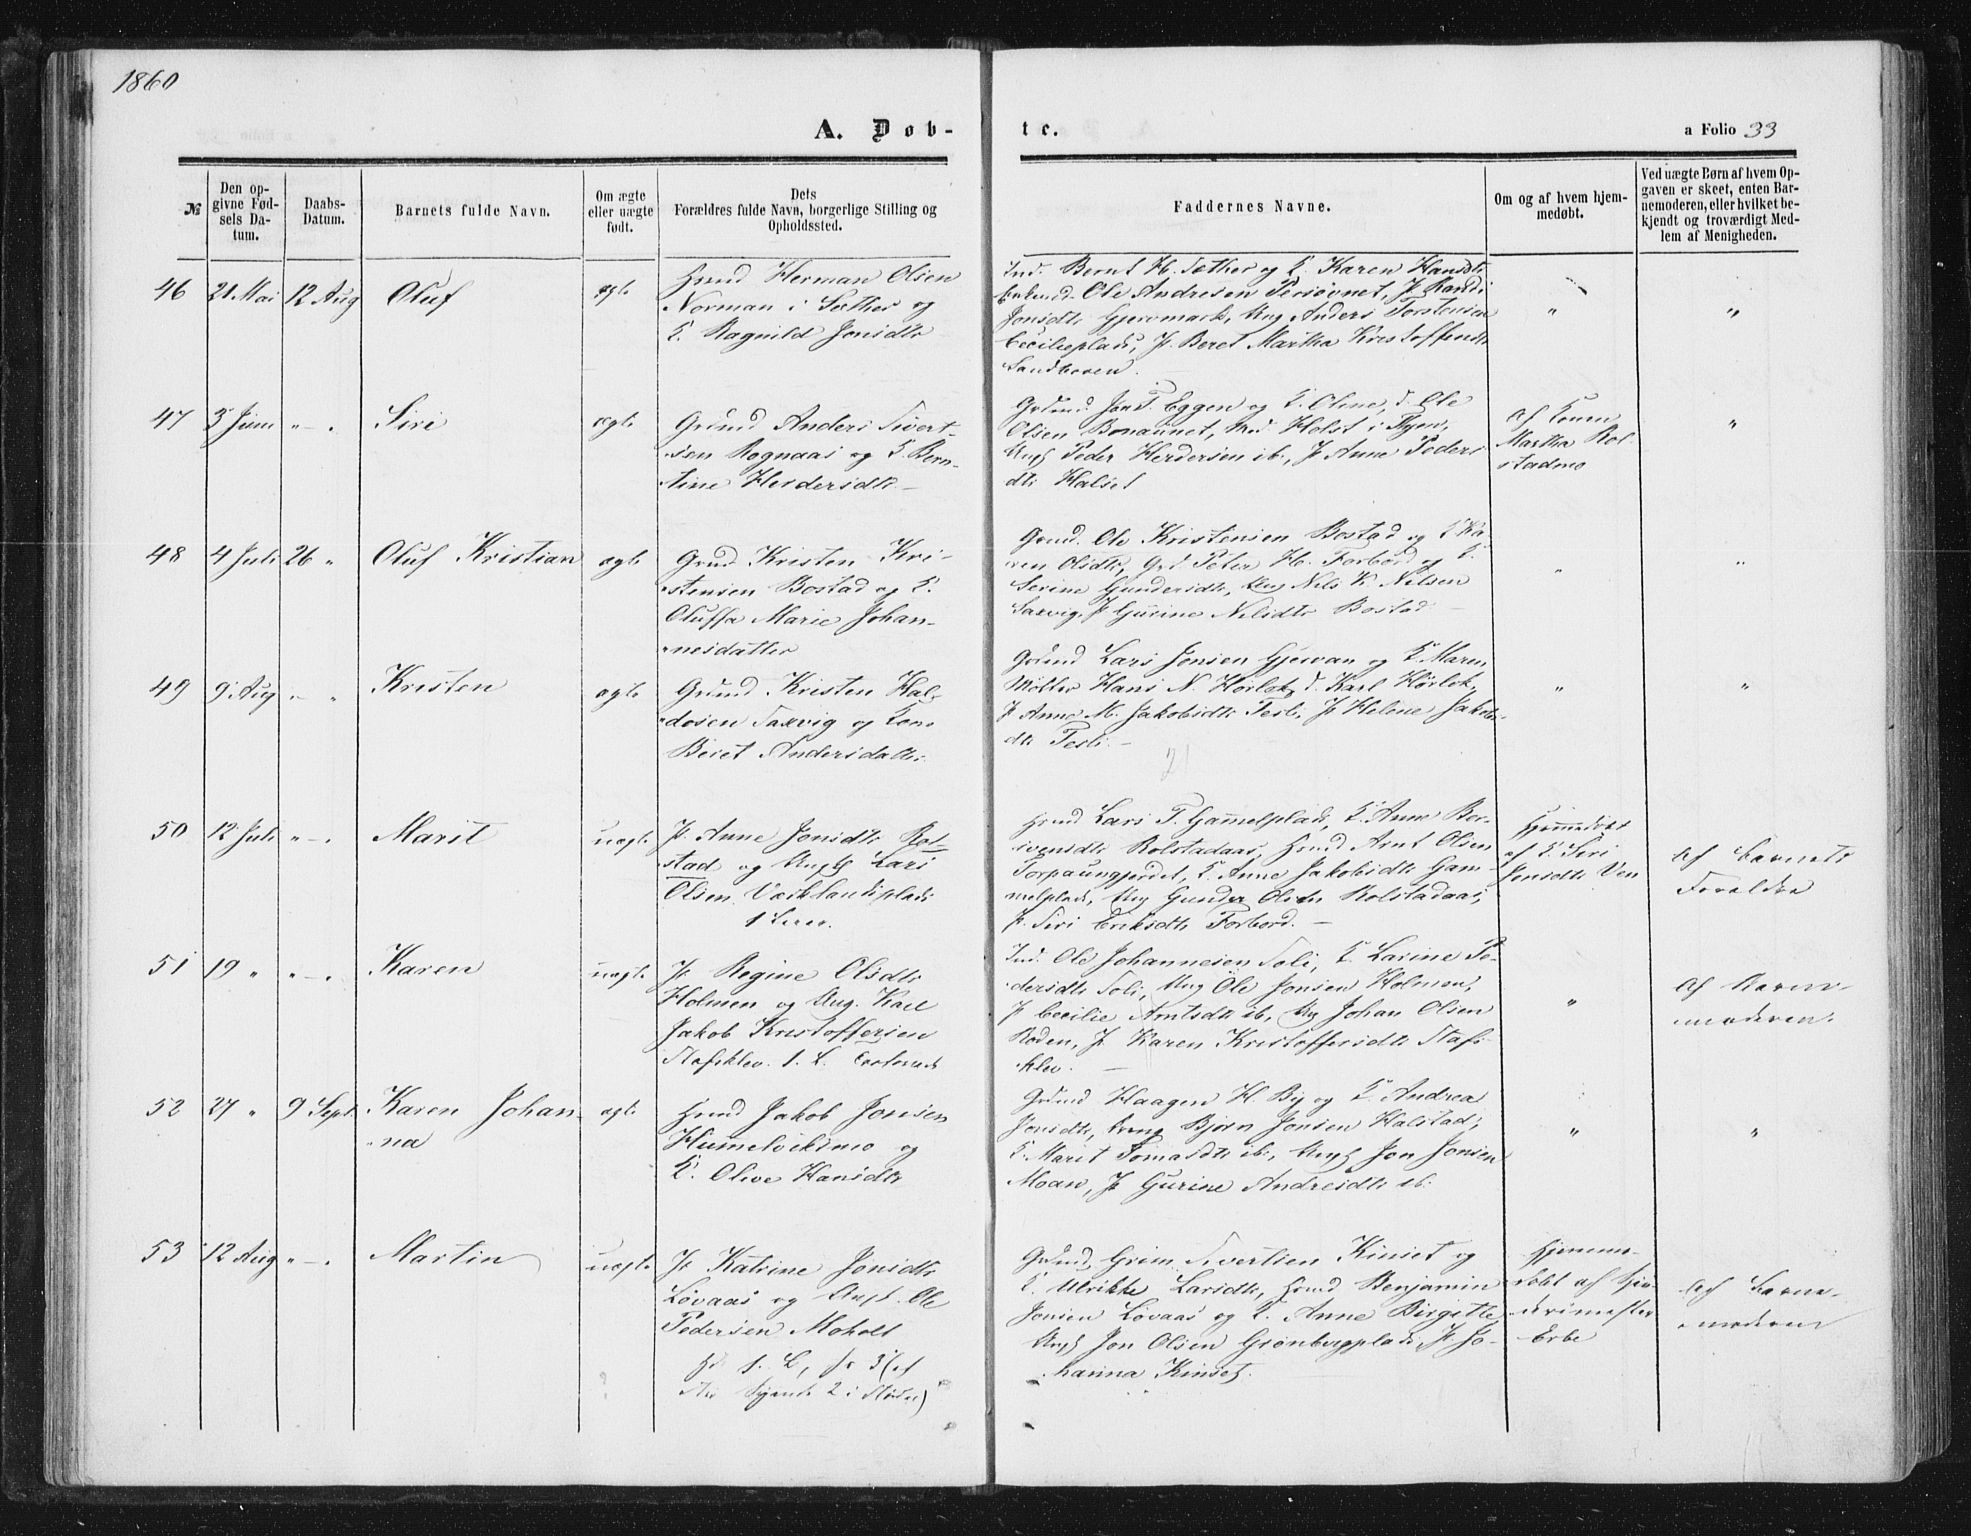 1860
A. Døb-
te.
a Folio 33
№
Den op-
givne Fød-
sels Da-
tum.
Daabs-
Datum.
Barnets fulde Navn.
Om ægte
eller uægte
født.
Dets
Forældres fulde Navn, borgerlige Stilling og
Opholdssted.
Faddernes Navne.
Om og af hvem hjem-
medøbt.
Ved uægte Børn af hvem Op-
gaven er skeet, enten Bar-
nemoderen, eller hvilket be-
kjendt og troværdigt Med-
lem af Menigheden.
46 21 Mai 12 Aug Oluf ægte
Hmd Herman Olsen
Norman i Sæther og
K. Ragnild Jonsdtr
Ind. Bernt H. Sæther og K. Karen Hansdtr
Ole Andresen Persövnet, P. Randi
Jonsdtr Gjervmark, Ung Anders Torstensen
Cecilieplads, P. Beret Martha Kristoffersdtr
Sandhoven.
"
"
47 3 Juni " - . Siri ægte
Grdmd Anders Sivert-
sen Rognaas og K. Bern-
tine Herdersdtr
Grdmd. Jon T. Eggen og K. Oline, d. Ole
Olsen Bonaunet, Md. Holst i Thjem,
Ungk Peder Herdersen ib., P. Anne Peders
dtr Halset
af Konen
Martha Rol-
stadmo
"
48 4 Juli 26 " Oluf Kristian ægte
Grmd Kristen Kri-
stensen Bostad og K.
Oluffa Marie Johan-
nesdatter
Grmd. Ole Kristensen Bostad og K. Ka-
ren Olsdtr, Grd Peter H. Forbord og K.
Serine Gundersdtr, Ung Nils K. Nilsen
Saxvig, P. Gurine Nilsdtr Bostad
"
"
49 9 Aug " - " Kristen ægte
Grdmd Kristen Hal-
dosen Saxvig og Kone
Beret Andersdatter
Grdmd Lars Jonsen Gjervan og K. Maren,
Möller Hans N. Hörlok, d. Karl Hörlok,
P. Anne M. Jakobsdtr Fesli, P. Helene Jakobs-
dtr Fesli. -
"
"
50 12 Juli " - . Marit uægte
P. Anne Jonsdtr Rol-
stad og Ungk Lars
Olsen Værklandsplads
1 Leierm.
Hmd Lars T. Gammelplads, K. Anne Ber-
svensdtr Rolstadaas, Hmd Arnt Olsen
Torpaungjerdet, K. Anne Jakobsdtr Gam-
melplads, Ung Gunder Olsen Rolstadaas,
P. Siri Eriksdtr Forbord. -
Hjemmedöbt
af K. Siri
Jonsdtr Ven
Af Barnets
Forældre
51 19 " " - . Karen uægte
P. Regine Olsdtr
Holmen og Ung. Karl
Jakob Kristoffersen
Stafsklev. 1. L.
Ind. Ole Johannesen Soli, K. Larine Pe-
dersdtr Soli, Ung Ole Jonsen Holmen,
P. Cecilie Arntsdtr ib., Ung Johan Olsen
Roden, P. Karen Kristoffersdtr Stafs-
klev. -
"
Af Barne-
moderen.
52 27 " 9 Sept. Karen Johan-
na
ægte
Hmd Jakob Jonsen
Hummelvikmo og
K. Olive Hansdtr
Grdmd Haagen H By og K. Andrea
Jonsdtr, Björn Jonsen Halstad,
K. Marit Tomasdtr ib., Ungk Jon Jonsen
Moan, P. Gurine Andreasdtr ib.
"
"
53 12 Aug " - . Martin uægte
P. Katrine Jonsdtr
Lövaas og Ungk. Ole
Pedersen Moholt
1. L,
Grdmd Grim Sivertsen Kinset og
K. Ulrikke Larsdtr, Hmd Benjamin
Jonsen Lövaas og K. Anne Birgitte,
Ungk Jon Olsen Grönbergplads, P. Jo-
hanna Kinset.
Hjemme-
döbt af
Erbe
Af Barne-
moderen